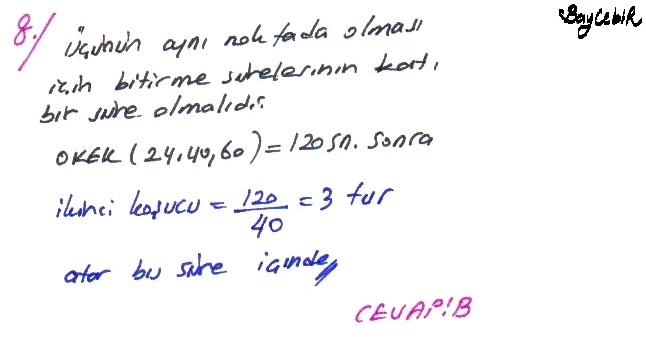 BayCebiR
8.) Üçünün aynı noktada olması
için bitirme sürelerinin katı
bir süre olmalıdır.
OKEK (24,40,60) = 120 sn. sonra
ikinci koşucu = 120/40 = 3 tur
atar bu süre içinde
CEVAP!B